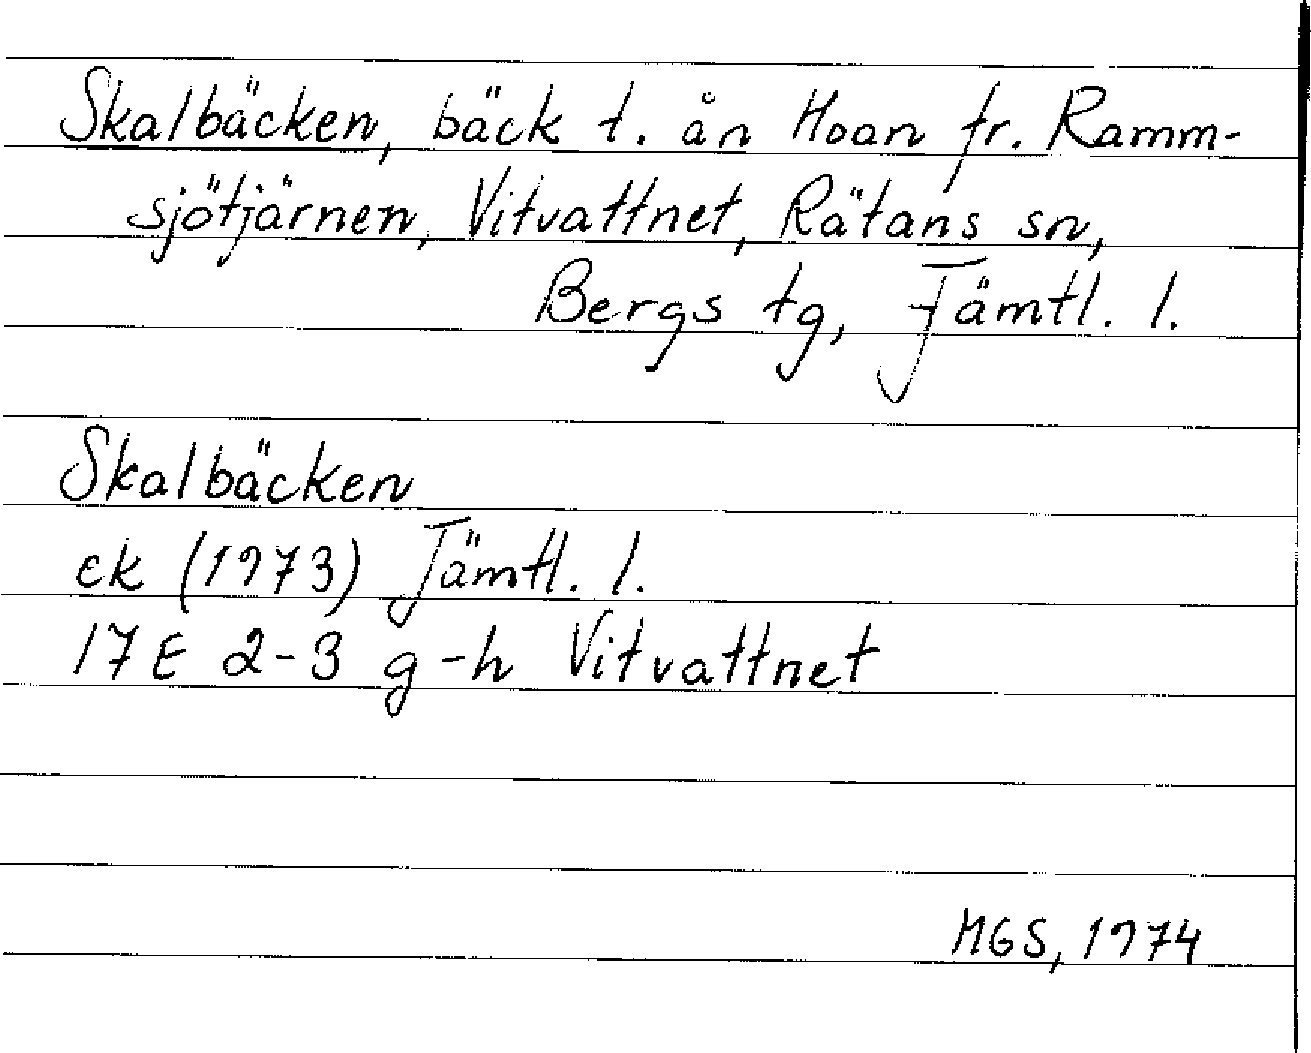 Skalbäcken, bäck t. ån Hoan fr. Ramm-
sjötjärnen, Vitvattnet, Rätans sn,
Bergs tg, Jämtl. l.
Skalbäcken
ek (1973) Jämtl. l.
17E 2-3 g-h Vitvattnet
MGS, 1974